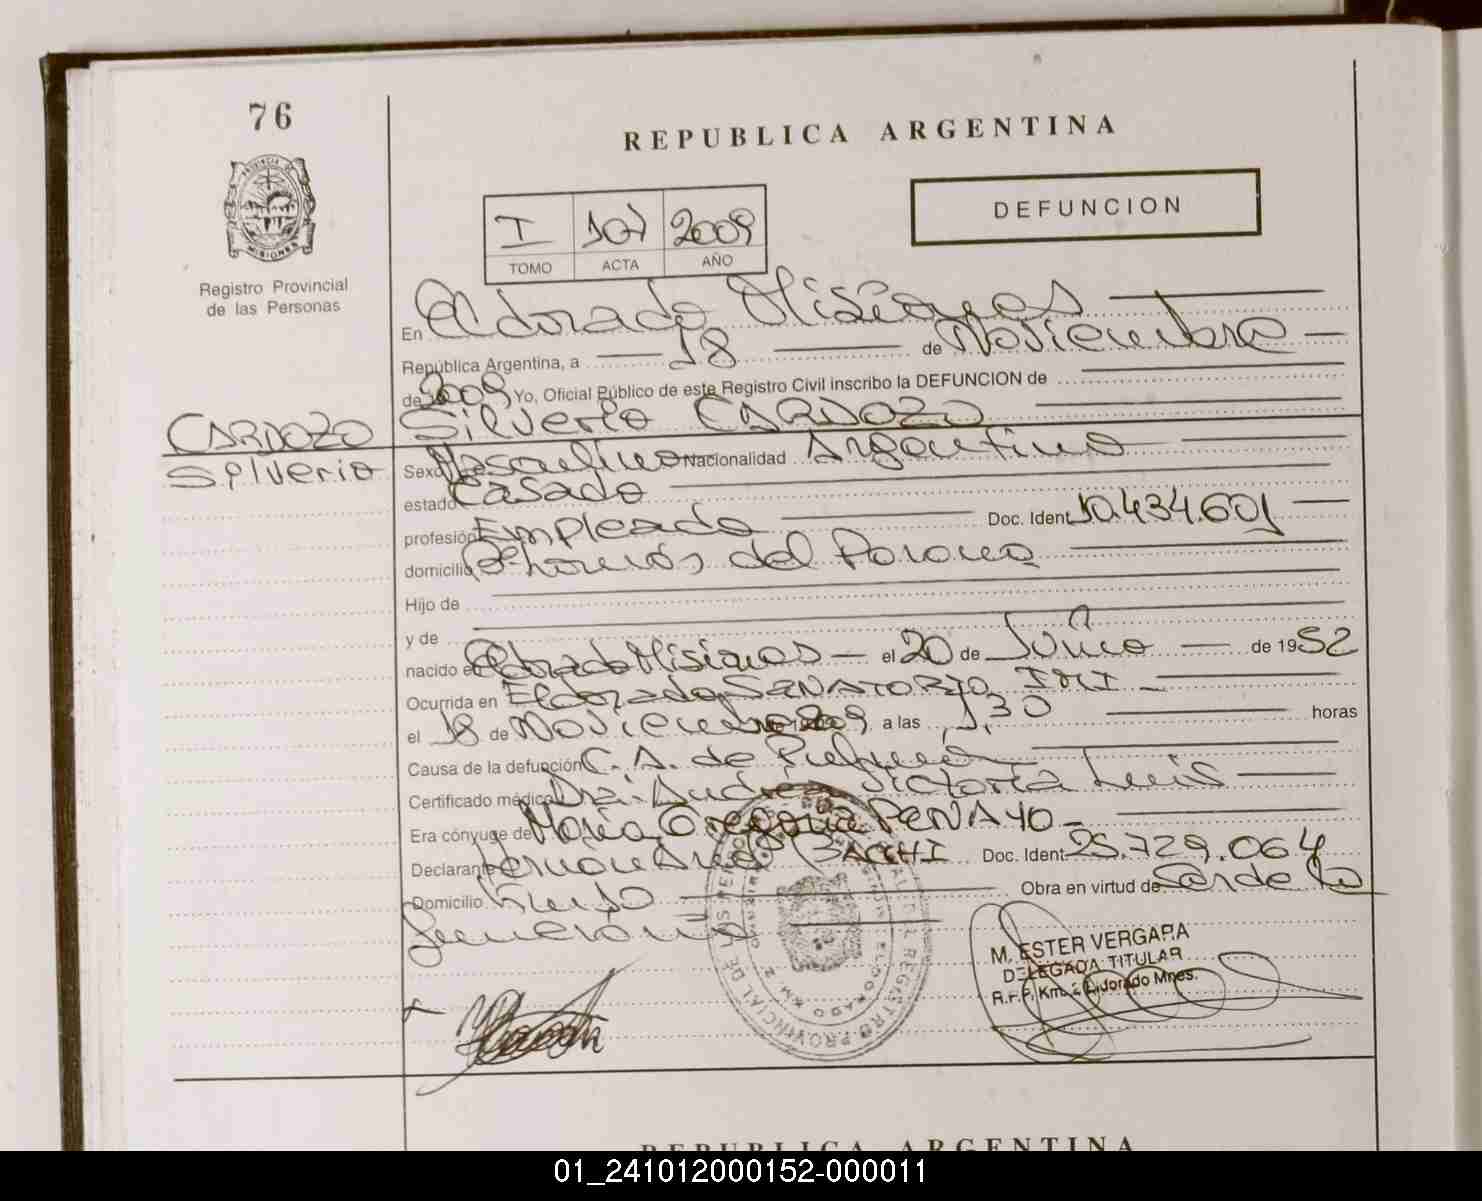 76
REPUBLICA ARGENTINA
PROVINCIA DE
MISIONES
Registro Provincial
de las Personas
DEFUNCION
I 107 2009
TOMO ACTA AÑO
En Eldorado Misiones
República Argentina, a 18 de Noviembre
de 2009 Yo, Oficial Público de este Registro Civil inscribo la DEFUNCION de
CARDOZO Silverio CARDOZO
Silverio Sexo Masculino Nacionalidad Argentino
estado Casado
profesión Empleado Doc. Ident 10.434.601
domicilio del Parana
Hijo de
y de
nacido en Eldorado Misiones el 20 de Junio de 1952
Ocurrida en Eldorado, SANATORIO IMI
el 18 de Noviembre 2009 a las 1,30 horas
Causa de la defunción C. A. de
Certificado médico Dra. Andrea Victoria Luis
Era cónyuge de María Gregoria PENAYO
Declarante BACCHI Doc. Ident 25.729.064
Domicilio Obra en virtud de
M. ESTER VERGARA
DELEGADA TITULAR
R.P.P. Km. 2 Eldorado Mnes.
REPUBLICA ARGENTINA
01_241012000152-000011